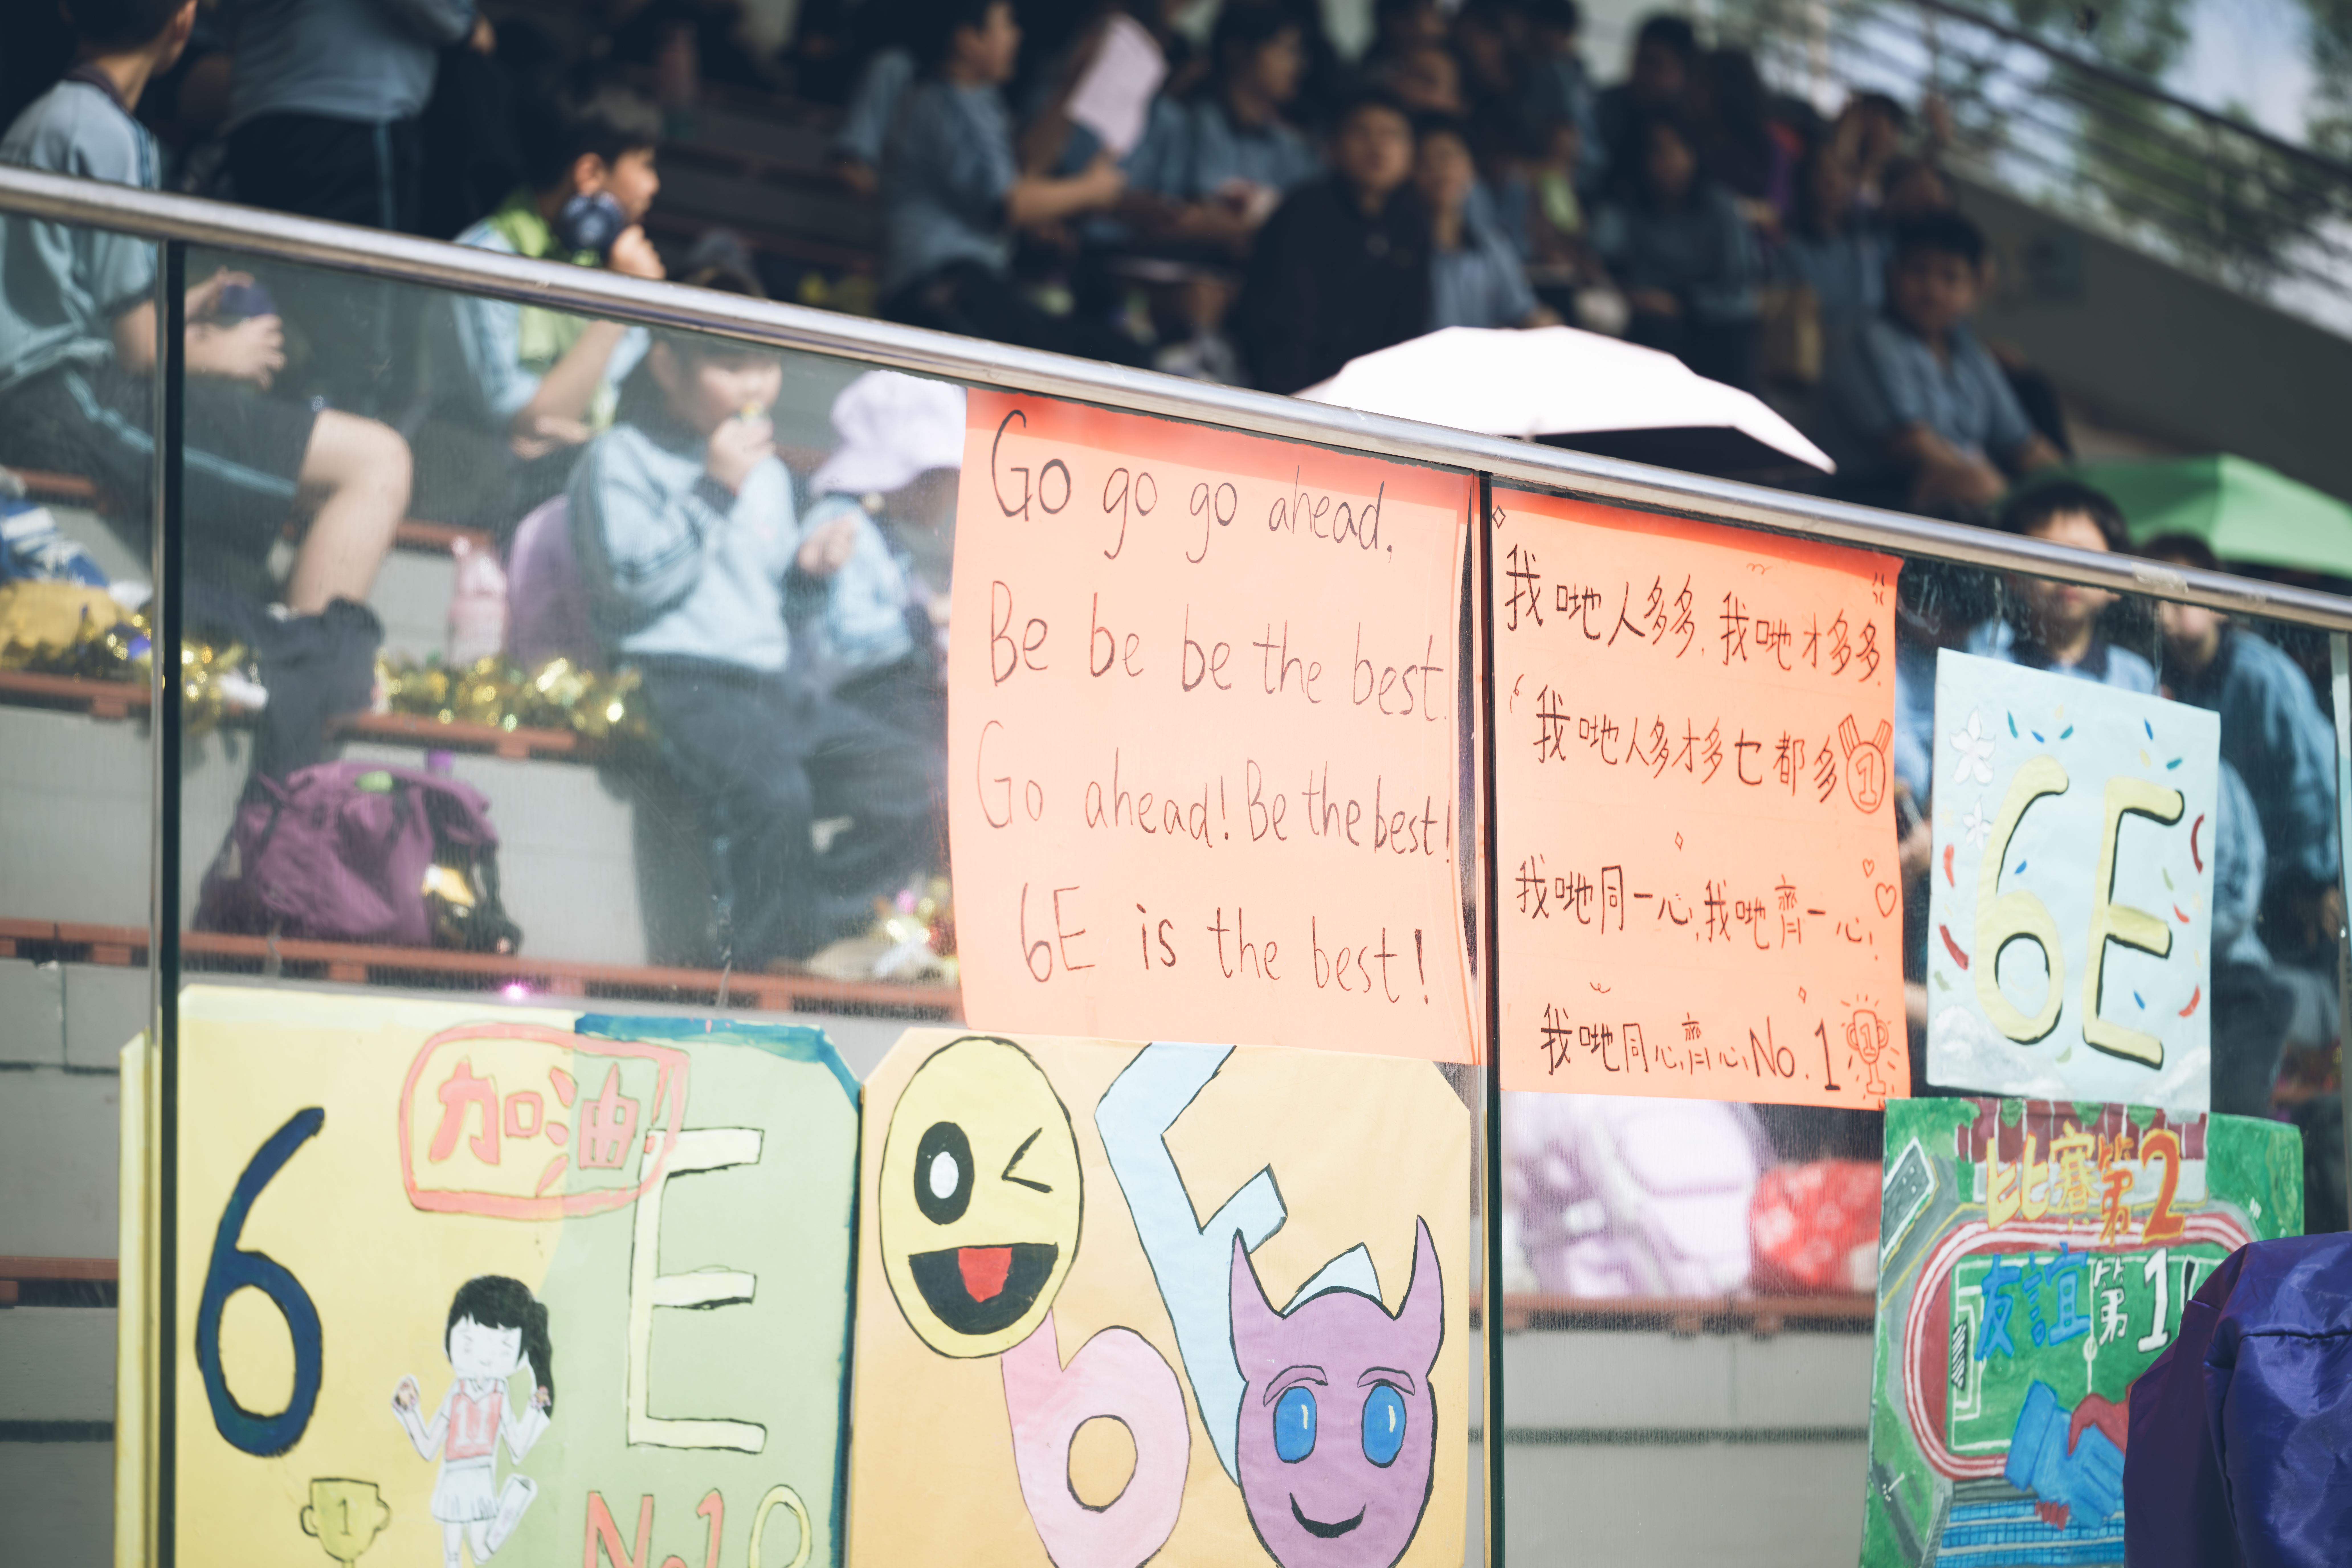 Go go go ahead.
Be be be the best.
Go ahead! Be the best!
6E is the best!
我哋人多多,我哋才多多.
我哋人多才多乜都多
1
我哋同一心,我哋齊一心,
我哋同心,齊心,No.1
1
6E
加油!
6E
11
1
No.1
6E
比賽第2
友誼第1